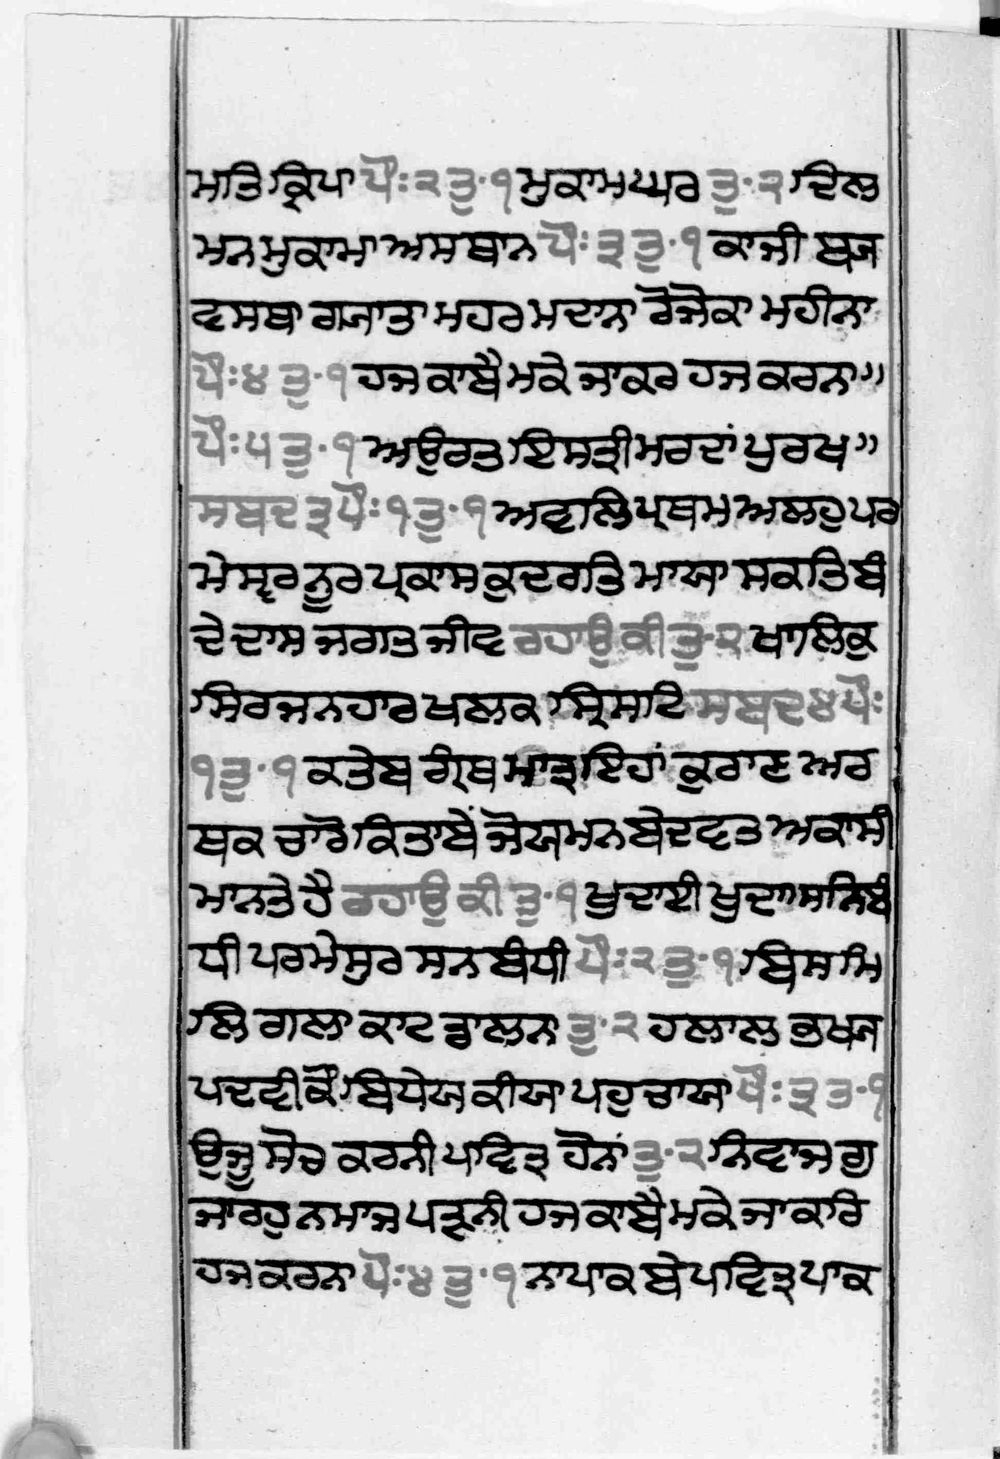 ਮਤਿ ਕ੍ਰਿਪਾ ਪੌਃ ੨ ਤੁ· ੧ ਮੁਕਾਮ ਘਰ ਤੁ· ੨ ਦਿਲ
ਮਨ ਮੁਕਾਮਾ ਅਸਥਾਨ ਪੌਃ ੩ ਤੁ· ੧ ਕਾਜੀ ਬਜ
ਵਸਥਾ ਗਯਾਤਾ ਮਹਰਮਦਾਨਾ ਰੋਜੋਕਾ ਮਹੀਨਾ
ਪੌਃ ੪ ਤੁ· ੧ ਹਜ ਕਾਬੈ ਮਕੇ ਜਾਕਰ ਹਜ ਕਰਨਾ"
ਪੌਃ ੫ ਤੁ· ੧ ਅਉਰਤ ਇਸਤ੍ਰੀ ਮਰਦਾਂ ਪੁਰਖ"
ਸਬਦ ੩ ਪੌਃ ੧ ਤੁ· ੧ ਅਵਾਲਿ ਪ੍ਰਥਮ ਅਲਹੁ ਪਰ
ਮੇਸ੍ਵਰ ਨੂਰ ਪ੍ਰਕਾਸ ਕੁਦਰਤਿ ਮਾਯਾ ਸਕਤਿ ਬੰ
ਦੇ ਦਾਸ ਜਗਤ ਜੀਵ ਰਹਾਉ ਕੀ ਤੁ· ੨ ਖਾਲਿਕੁ
ਸਿਰਜਨਹਾਰ ਖਲਕ ਸ੍ਰਿਸਟਿ ਸਬਦ ੪ ਪੌਃ
੧ ਤੁ· ੧ ਕਤੇਬ ਗ੍ਰੰਥ ਮਾਤ੍ਰ ਇਹਾਂ ਕੁਰਾਣ ਅਰ
ਥਕ ਚਾਰੋ ਕਿਤਾਬੇਂ ਜੋ ਯਮਨ ਬੇਦਵਤ ਅਕਾਸੀ
ਮਾਨਤੇ ਹੈ ਰਹਾਉ ਕੀ ਤੁ· ੧ ਖੁਦਾਈ ਖੁਦਾ ਸਨਿਬੰ
ਧੀ ਪਰਮੇਸੁਰ ਸਨਬੰਧੀ ਪੌਃ ੨ ਤੁ· ੧ ਬਿਸਮਿ
ਲਿ ਗਲਾ ਕਾਟ ਡਾਲਨ ਤੁ· ੨ ਹਲਾਲ ਭਖਜ
ਪਦਵੀ ਕੌ ਬਿਧੇਯ ਕੀਯਾ ਪਹੁਚਾਯਾ ਪੌਃ ੩ ਤ· ੧
ਉਜੂ ਸੋਚ ਕਰਨੀ ਪਵਿਤ੍ਰ ਹੋਨਾਂ ਤੁ· ੨ ਨਿਵਾਜ ਗੁ
ਜਾਰਹੁ ਨਮਾਜ ਪੜ੍ਹਨੀ ਹਜ ਕਾਬੈ ਮਕੇ ਜਾ ਕਰਿ
ਹਜ ਕਰਨਾ ਪੌਃ ੪ ਤੁ· ੧ ਨਾਪਾਕ ਬੇਪਵਿਤ੍ਰ ਪਾਕ